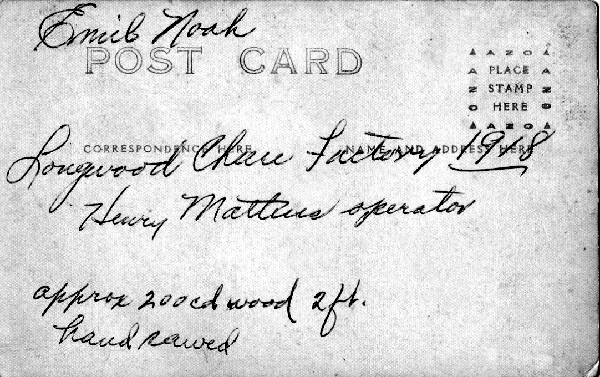 Emil Noah
POST CARD
AZO
PLACE
STAMP
HERE
AZO
CORRESPONDENCE HERE
NAME AND ADDRESS HERE
Longwood Factory 1918
Henry operator
approx 200 cd wood 2 ft.
hand sawed